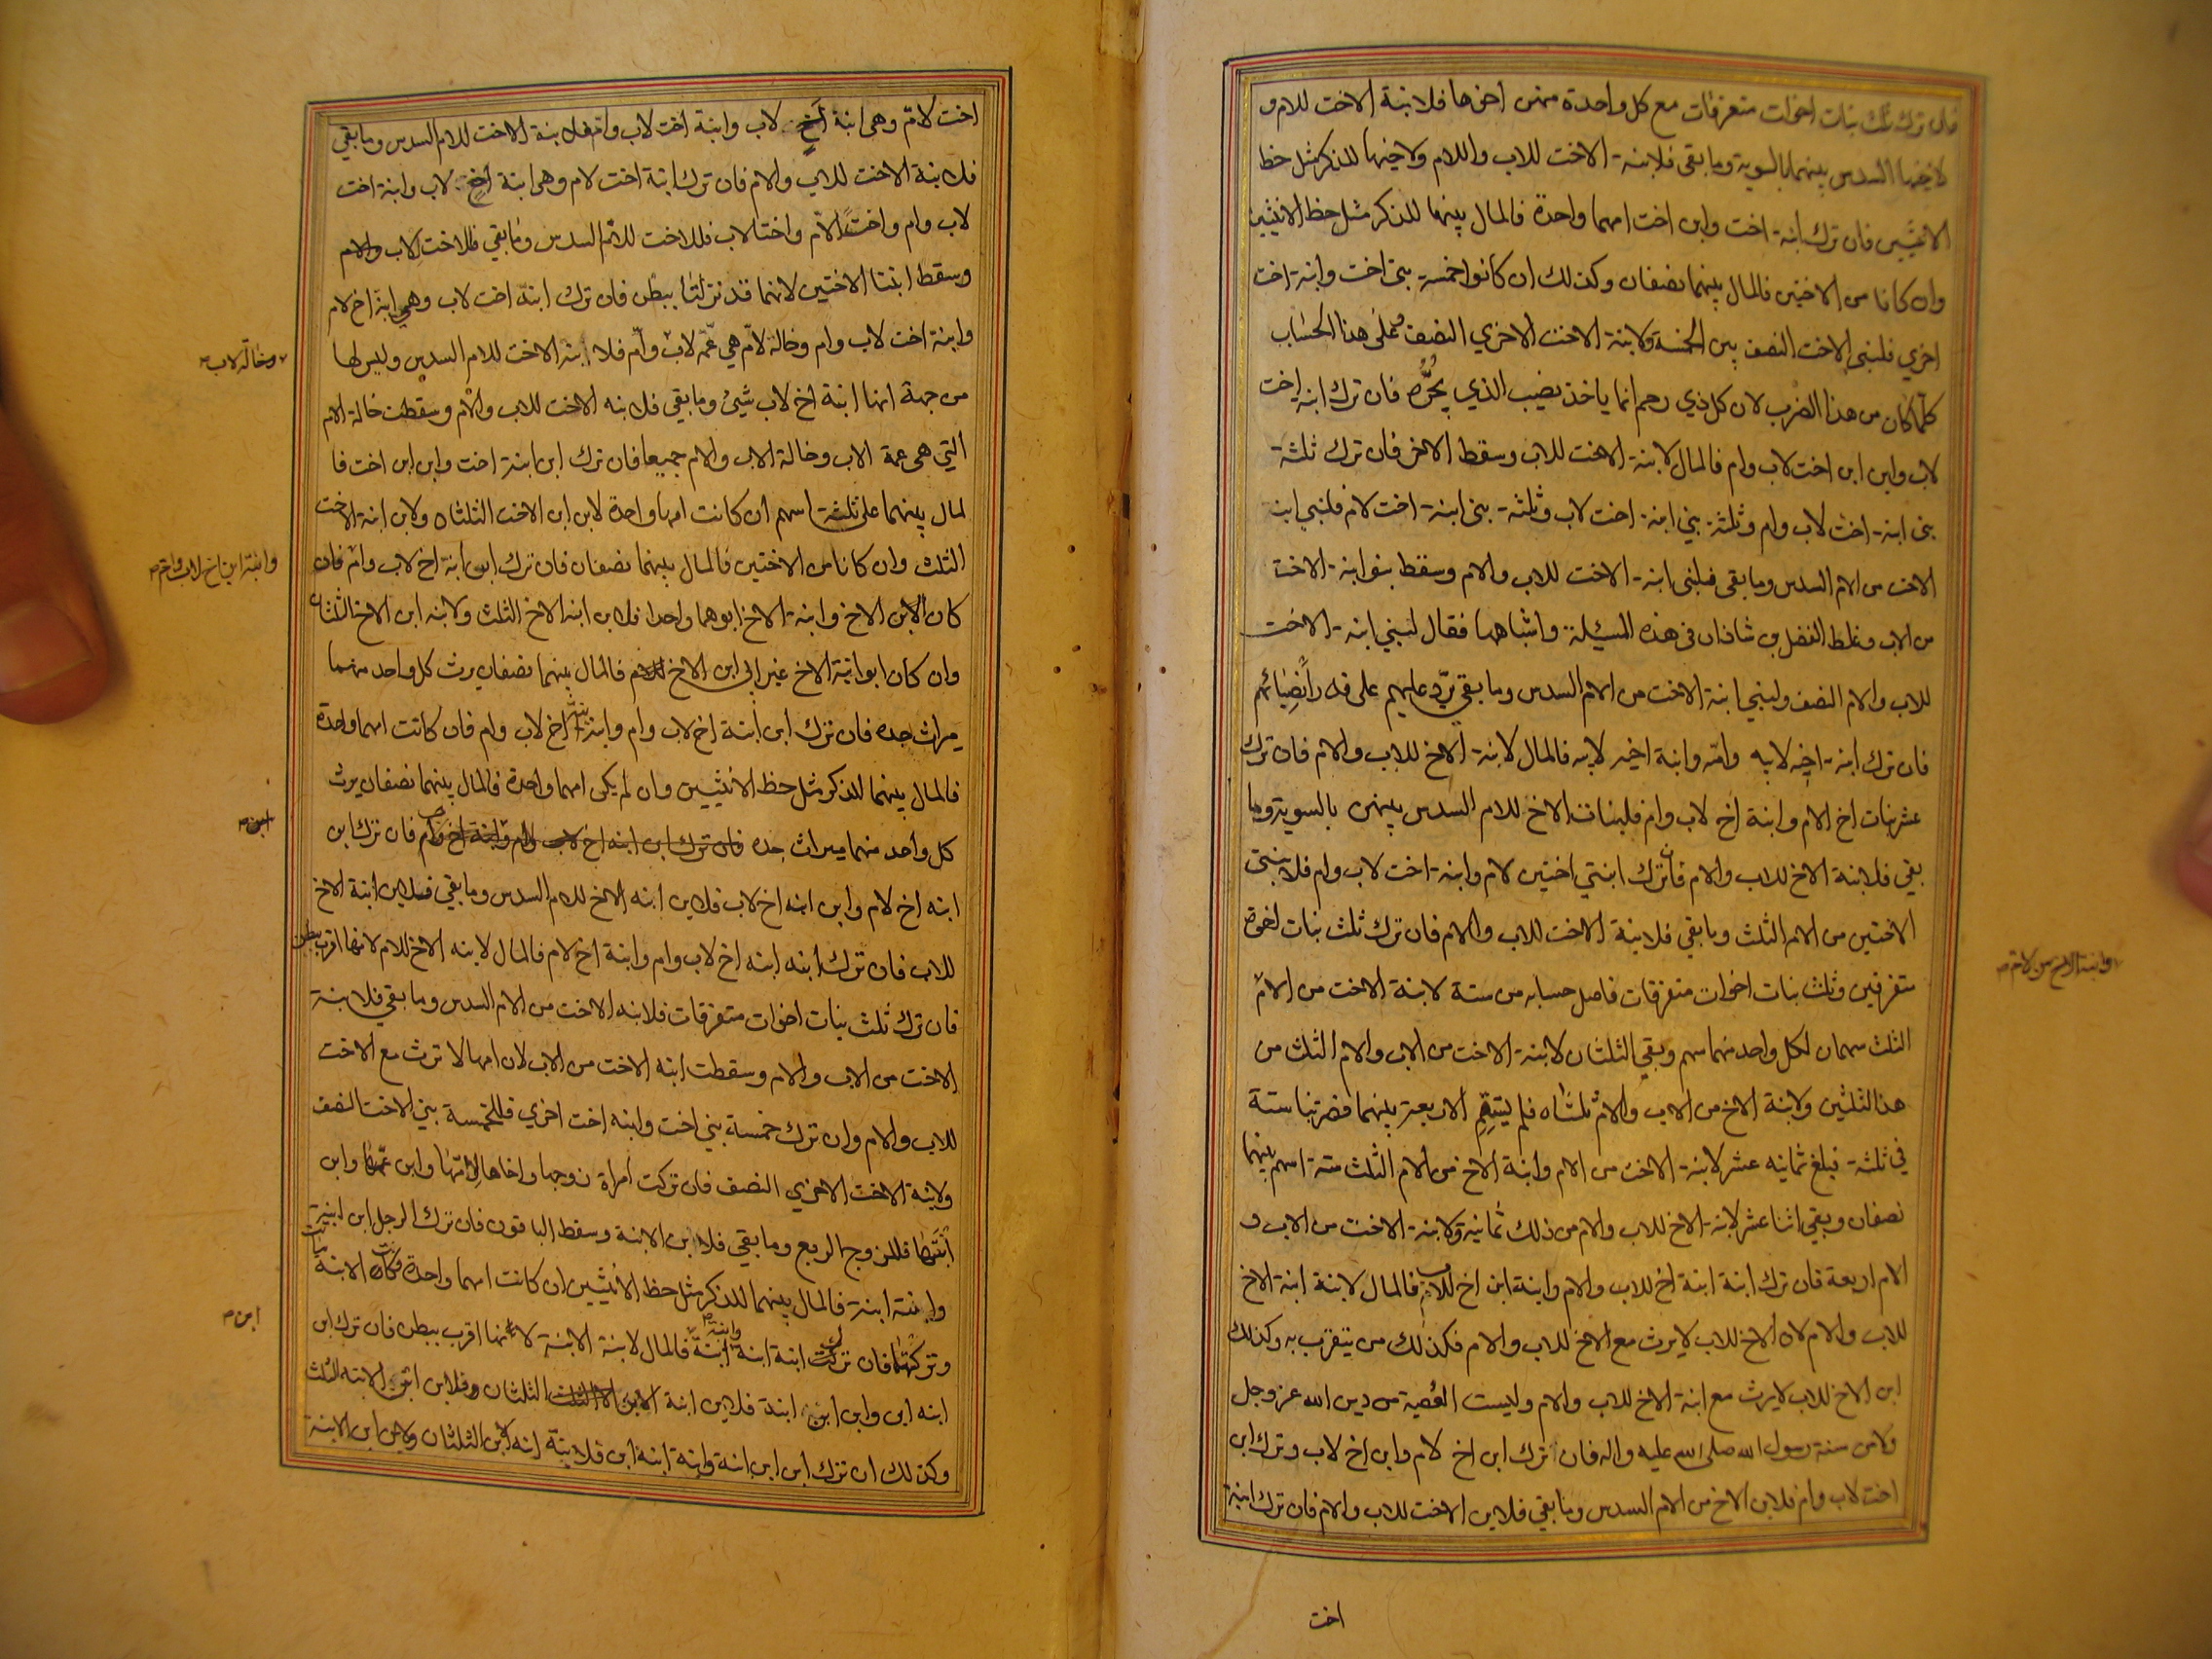 فان ترك ثلث بنات اخوات متفرقات مع كل واحدة منهن اخوها فلابنة الاخت للام و
لاخيها السدس بينهما بالسوية وما بقي فلابنة الاخت للاب واللام ولاخيها للذكر مثل حظ
الانثيين فان ترك ابنة اخت وابن اخت امهما واحدة فالمال بينهما للذكر مثل حظ الانثيين
وان كانا من الاختين فالمال بينهما نصفان وكذلك ان كانوا خمسة بني اخت وابنة اخت
اخري فلبني الاخت النصف بين الخمسة ولابنة الاخت الاخري النصف فعلي هذا الحساب
كلما كان من هذا الضرب لان كل ذي رحم انما ياخذ نصيب الذي يجره فان ترك ابنة اخت
لاب وابن ابن اخت لاب وام فالمال لابنة الاخت للاب وسقط الاخر فان ترك ثلثة
بني ابنة اخت لاب وام وثلثة بني ابنة اخت لاب وثلثة بني ابنة اخت لام فلبني ابنة
الاخت من الام السدس وما بقي فلبني ابنة الاخت للاب والام وسقط بنو ابنة الاخت
من الاب وغلط الفضل بن شاذان في هذه المسئلة واشباهها فقال لبني ابنة الاخت
للاب والام النصف ولبني ابنة الاخت من الام السدس وما بقي يرد عليهم على قدر انصبائهم
فان ترك ابنة اخيه لابيه وامه وابنة اخيه لابيه فالمال لابنة الاخ للاب والام فان ترك
عشر بنات اخ الام وابنة اخ لاب وام فلبنات الاخ للام السدس بينهن بالسوية وما
بقي فلابنة الاخ للاب والام فان ترك ابنتي اختين لام وابنة اخت لاب وام فلابنتي
الاختين من الام الثلث وما بقي فلابنة الاخت للاب والام فان ترك ثلث بنات اخوة
متفرقين وثلث بنات اخوات متفرقات فاصل حسابه من ستة لابنة الاخت من الام
وابنة الاخ من الام
الثلث سهمان لكل واحد منهما سهم وبقي الثلثان لابنة الاخت من الاب والام الثلث من
هذا الثلثين ولابنة الاخ من الاب والام ثلثاه فلم يستقم الاربعة بينهما فضربنا ستة
في ثلثة فبلغ ثمانيه عشر لابنة الاخت من الام وابنة الاخ من الام الثلث ستة اسهم بينهما
نصفان وبقي اثنا عشر لابنة الاخ للاب والام من ذلك ثمانية ولابنة الاخت من الاب و
الام اربعة فان ترك ابنة ابنة اخ للاب والام وابنة ابن اخ للاب فالمال لابنة ابنة الاخ
للاب والام لان الاخ للاب لا يرث مع الاخ للاب والام فكذلك من يتقرب به وكذلك
ابن الاخ للاب لا يرث مع ابنة الاخ للاب والام وليست العصبة من دين الله عز وجل
ولا من سنة رسول الله صلى الله عليه واله فان ترك ابن اخ لام وابن اخ لاب وترك ابن
اخت لاب وام فلابن الاخ من الام السدس وما بقي فلابن الاخت للاب والام فان ترك ابنة
اخت
اخت لام وهي ابنة اخ لاب وابنة اخت لاب وام فلابنة الاخت للام السدس وما بقي
فلابنة الاخت للاب والام فان ترك ابنة اخت لام وهي ابنة اخ لاب وابنة اخت
لاب وام واختا لام واختا لاب فللاخت للام السدس وما بقي فللاخت للاب والام
وسقط ابنتا الاختين لانهما قد نزلتا ببطن فان ترك ابنة اخت لاب وهي ابنة اخ لام
وابنة اخت لاب وام وخالة لام هي عمة لاب وام فلابنة الاخت للام السدس وليس لها
وخالة لاب
من جهة انها ابنة اخ لاب شيئ وما بقي فلابنه الاخت للاب والام وسقطت خالة الام
التي هي عمة الاب وخالة الاب والام جميعا فان ترك ابن ابنة اخت وابن ابن اخت فا
لمال بينهما على ثلثة اسهم ان كانت امهما واحدة لابن ابن الاخت الثلثان ولابن ابنة الاخت
الثلث وان كانا من الاختين فالمال بينهما نصفان فان ترك ابن ابنة اخ لاب وام فان
وابنة ابن اخ لاب وام
كان الابن الاخ وابنة الاخ ابوهما واحدا فلابن ابنة الاخ الثلث ولابنه ابن الاخ الثلثان
وان كان ابو ابنة الاخ غير ابي ابن الاخ فالمال بينهما نصفان يرث كل واحد منهما
ميراث جده فان ترك ابن ابنة اخ لاب وام وابنة اخ لاب وام فان كانت امهما واحدة
فالمال بينهما للذكر مثل حظ الانثيين وان لم يكن امهما واحدة فالمال بينهما نصفان يرث
كل واحد منهما ميراث جده فان ترك ابن ابنه اخ لاب وام وابنة اخ وام فان ترك ابن
ابن
ابنه اخ لام وابن ابنه اخ لاب فلابن ابنه الاخ للام السدس وما بقي فلابن ابنة الاخ
للاب فان ترك ابنه ابنه اخ لاب وام وابنة اخ لام فالمال لابنه الاخ للام لانها اقرب ببطن
فان ترك ثلث بنات اخوات متفرقات فلابنه الاخت من الام السدس وما بقي فلابنة
الاخت من الاب والام وسقطت ابنه الاخت من الاب لان امها لا ترث مع الاخت
للاب والام وان ترك خمسة بني اخت وابنه اخت اخري فللخمسة بني الاخت النصف
ولابنة الاخت الاخري النصف فان تركت امراة زوجها واخاها لامها وابن عمها وابن
ابنتها فللزوج الربع وما بقي فلابن الابنة وسقط الباقون فان ترك الرجل ابن ابنة
وابنة ابنة فالمال بينهما للذكر مثل حظ الانثيين ان كانت امهما واحدة فكان الابنة ماتت
وتركتهما فان ترك ابنة ابنة وابنة ابنة ابنة فالمال لابنة الابنة لانها اقرب ببطن فان ترك ابن
ابن
ابنه ابن وابن ابن ابنة فلابن ابنة الابن الثلثان ولابن ابن الابنه الثلث
وكذلك ان ترك ابن ابن ابنة وابنة ابنة ابن فلابنة ابنه الابن الثلثان ولابن ابن الابنة